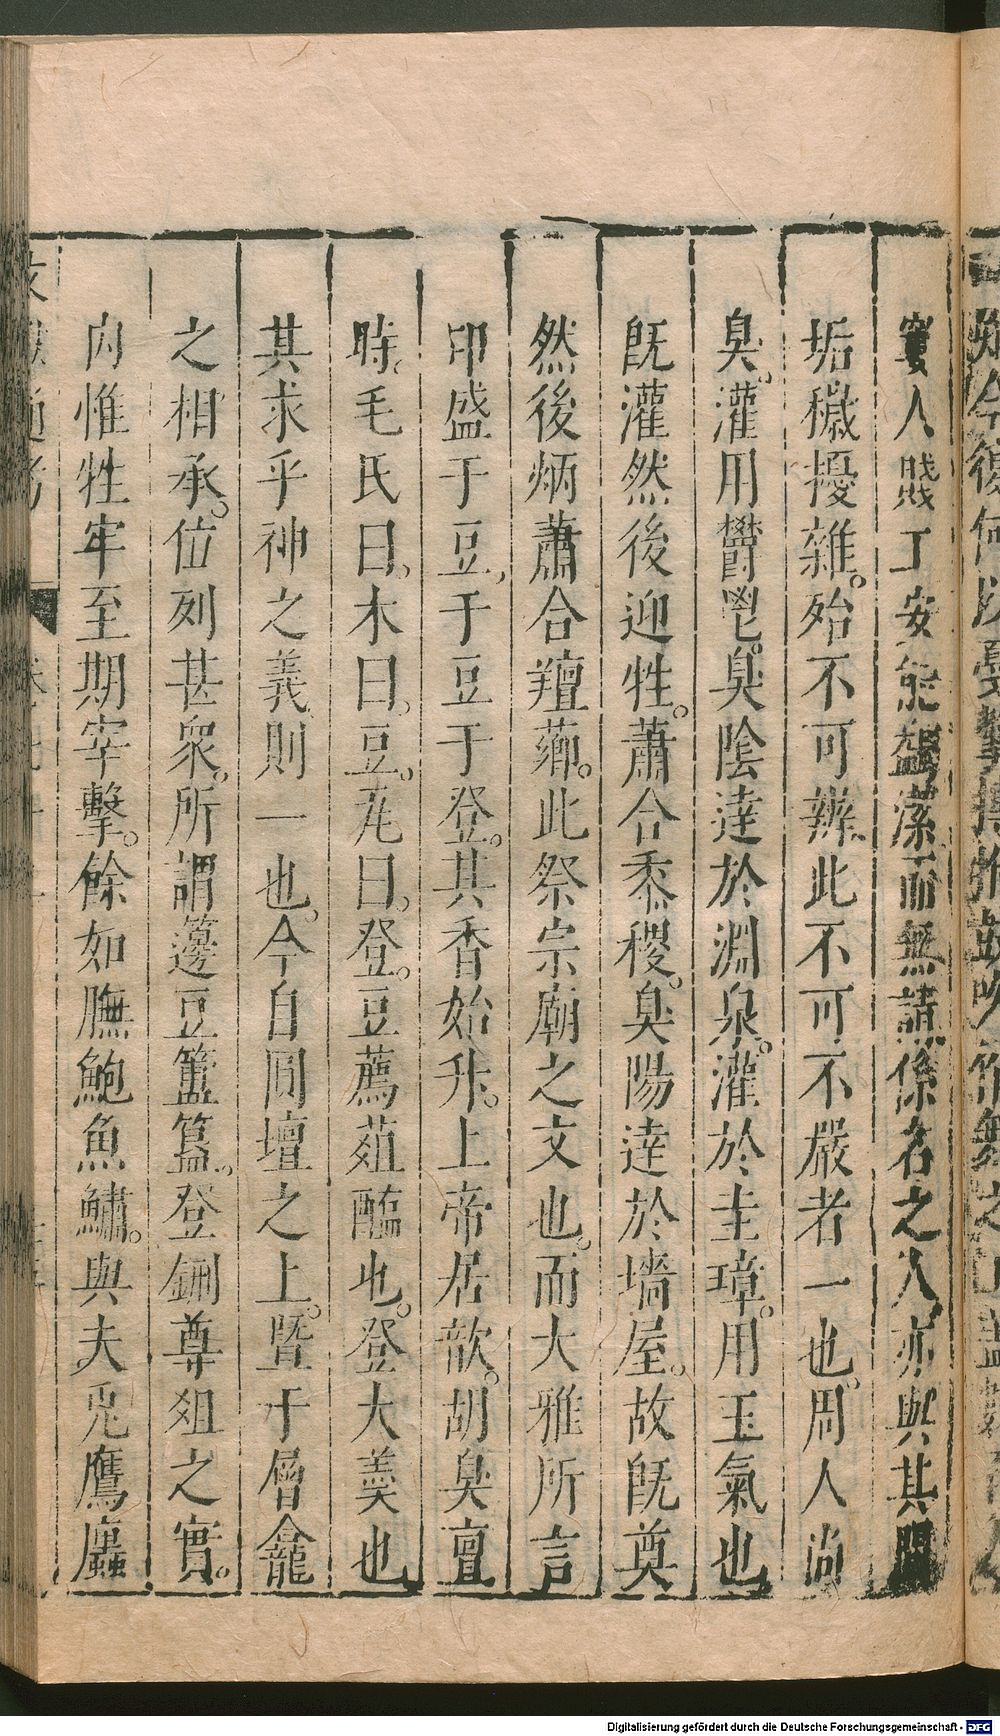 實人賤工安能蠲潔而無請係名之人亦與其間
垢穢擾雜。殆不可辨、此不可不嚴者一也。周人尚
臭。灌用鬱鬯。臭陰達於淵泉。灌於圭璋。用玉氣也
既灌然後迎牲。蕭合黍稷。臭陽達於墻屋。故既奠
然後焫蕭合羶薌。此祭宗廟之文也。而大雅所言
卬盛于豆、于豆于登。其香始升。上帝居歆。胡臭亶
時。毛氏曰。木曰。豆。瓦曰。登。豆薦葅醢也。登大羹也
其求乎神之義則一也。今自圜壇之上。暨于層龕
之相承。位列甚衆。所謂籩豆簠簋。登鉶尊俎之實。
内惟牲牢至期宰擊。餘如膴鮑魚鱐。與夫兎鴈蠯
Digitalisierung gefördert durch die Deutsche Forschungsgemeinschaft - DFG